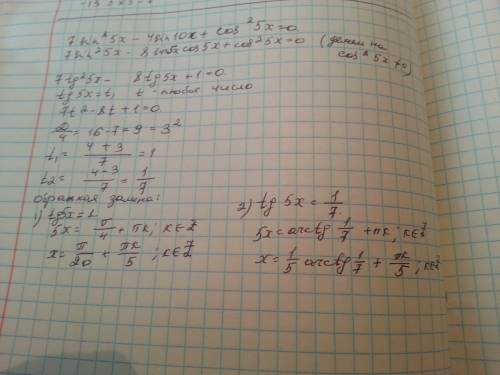 7sin²5x - 4sin10x + cos²5x=0
7sin²5x - 8sin5xcos5x+cos²5x=0 (делим на cos²5x≠0)
7tg²5x - 8tg5x+1=0
tg5x=t, t - любое число
7t²-8t+1=0
D/4=16-7=9=3²
t₁= (4+3)/7 =1
t₂= (4-3)/7 = 1/7
обратная замена:
1) tg5x=1
5x= π/4 + πk; k∈Z
x= π/20 + πk/5 ; k∈Z
2) tg 5x = 1/7
5x=arctg 1/7 + πk; k∈Z
x= 1/5 arctg 1/7 + πk/5 ; k∈Z